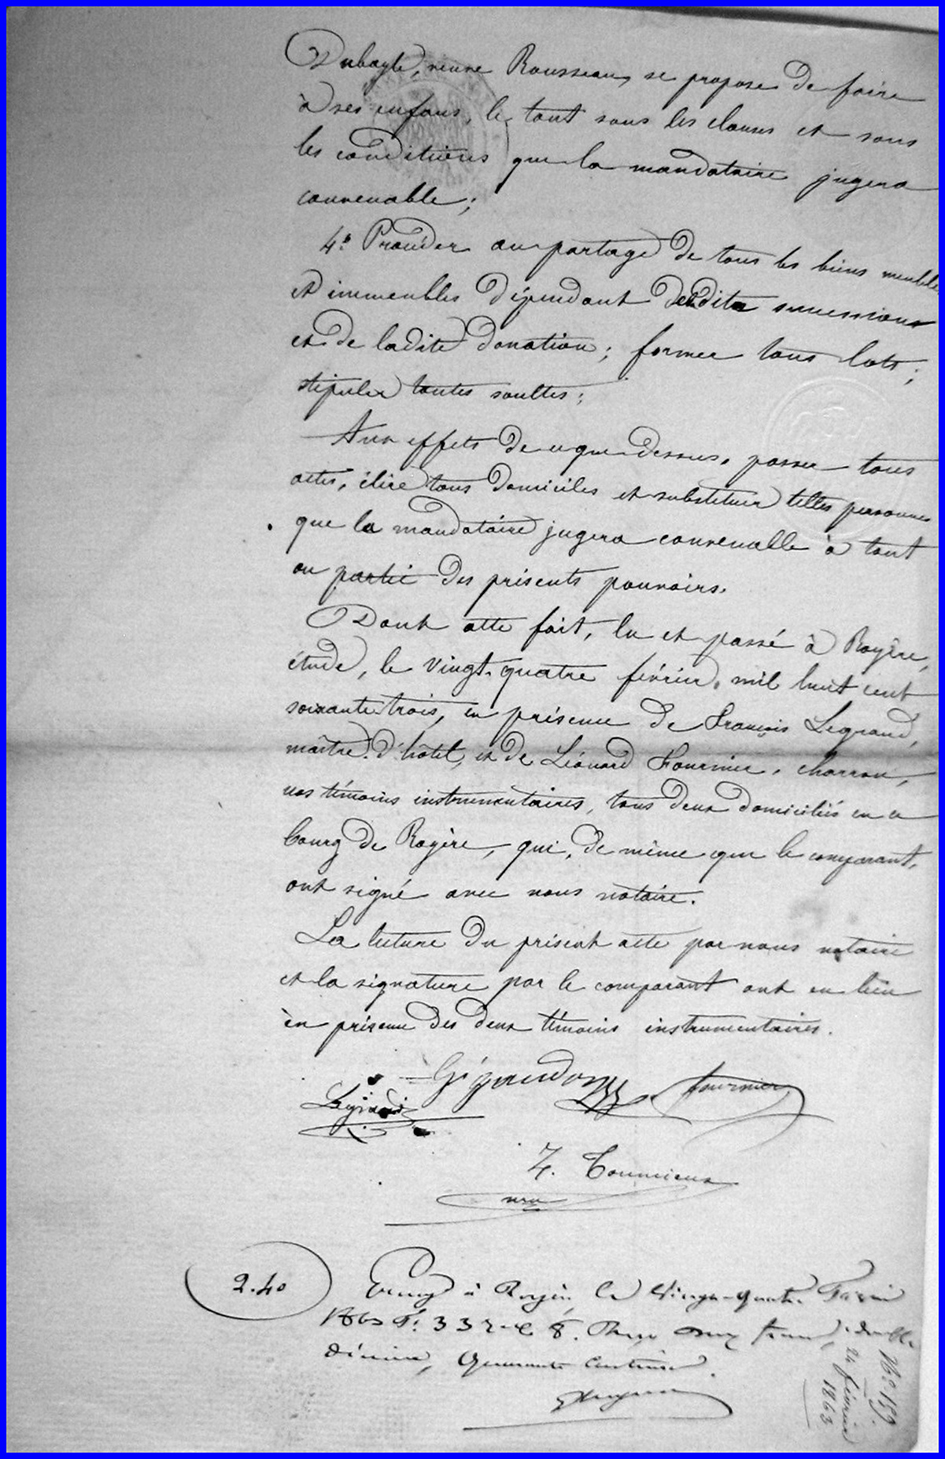 Dubayle, veuve Rousseau, se propose de faire
à ses enfans, le tout sous les clauses et sous
les conditions que la mandataire jugera
convenable;
4° Procéder au partage de tous les biens meubles
et immeubles dépendant desdites successions
et de ladite donation; former tous lots;
stipuler toutes soultes;
Aux effets de ce que dessus, passer tous
actes, élire tous domiciles et substituer telles personnes
que la mandataire jugera convenable à tout
ou partie des présents pouvoirs.
Dont acte fait, lu et passé à Royère,
étude, le vingt-quatre février, mil huit cent
soixante trois, en présence de François Legrand,
maître d'hôtel, et de Léonard Fournier, charron,
nos témoins instrumentaires, tous deux domiciliés en ce
bourg de Royère, qui, de même que le comparant,
ont signé avec nous notaire.
La lecture du présent acte par nous notaire
et la signature par le comparant ont eu lieu
en présence des deux témoins instrumentaires.
Legrand
Fournier
Z. Toumieux
nre
2.40
à Royère le vingt-quatre Février
1863 f° 33 c 8. Reçu deux francs, double
décime, quarante centimes.
N° 159.
24 février
1863